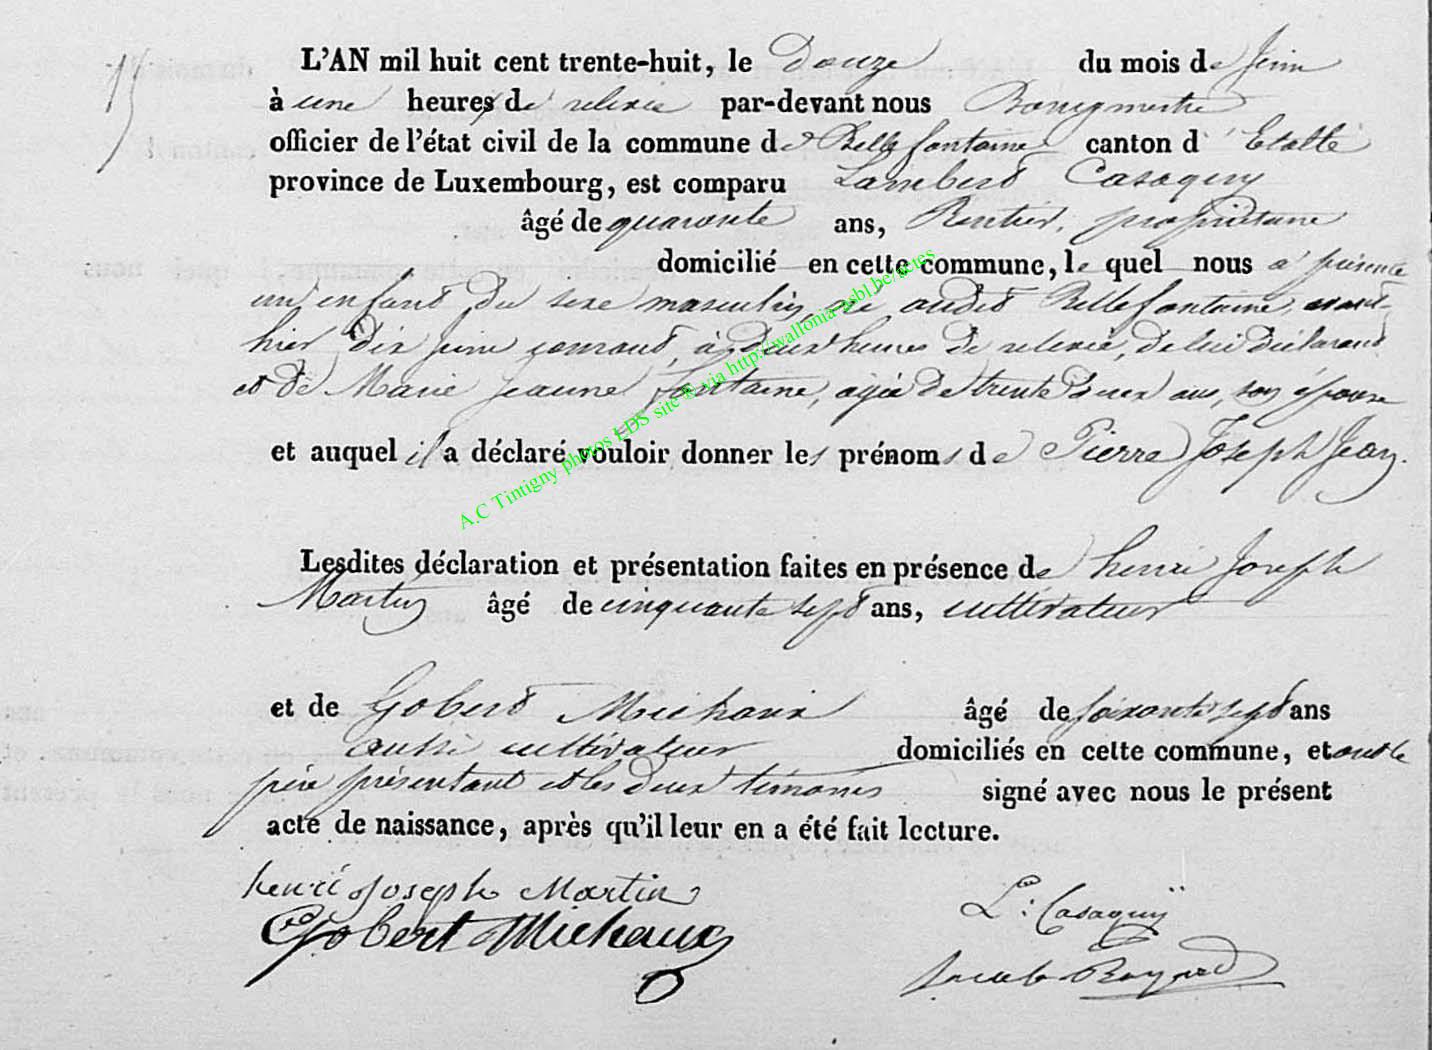 15
L'AN mil huit cent trente-huit, le Douze du mois de Juin
à une heures de relevée par-devant nous Bourgmestre
officier de l'état civil de la commune de Bellefontaine canton d' Etalle
province de Luxembourg, est comparu Lambert Casaquy
âgé de quarante ans, Rentier, propriétaire
domicilié en cette commune, le quel nous a présenté
un enfant du sexe masculin, né audit Bellefontaine, avant
hier Dix juin courant, à deux heures de relevée, de lui déclarant
et de Marie Jeanne fontaine, agée de trente deux ans, son épouse
et auquel il a déclaré vouloir donner les prénoms de Pierre Joseph Jean.
Lesdites déclaration et présentation faites en présence de henri Joseph
Martin âgé de cinquante sept ans, cultivateur
et de Gobert Michaux âgé de soixante sept ans
aussi cultivateur domiciliés en cette commune, et ont le
père présentant et les deux témoins signé avec nous le présent
acte de naissance, après qu'il leur en a été fait lecture.
henri Joseph Martin
L: Casaquÿ
Gobert Michaux
A.C Tintigny photos LDS site © via http://wallonia-asbl.be/actes